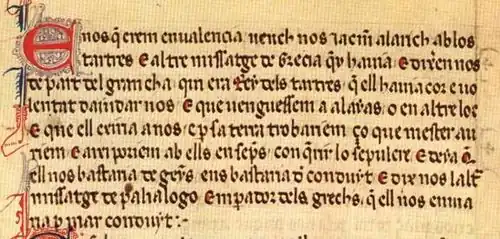 E nos q̄ erem en ualencia uench nos iacm̄ alarich ab los
tartres E altre missatge de grecia qͥ y hauia E dixeren nos
de part del gran cha qui era Rey dels tartres q̄ ell hauia cor e uo
lentat daiudar nos E que uenguessem a alayas, o en altre loc
E que ell exiria a nos, e ꝑ sa terra trobariem ço que mester au
riem E axi poriem ab ells ensēps, conq̄rir lo sepulcre E deya q̄
ell nos bastaria de geȳs, ens bastaria d̄ conduyt E dix nos laltͤ
missatge de palialogo Emperador dels grechs, q̄ ell nos enuia
ria ꝑ mar conduyt:-